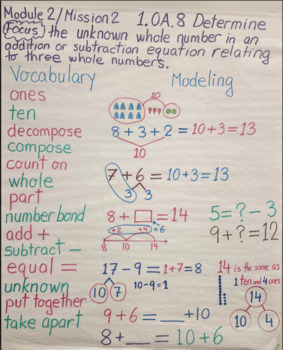 Module 2/Mission 2 1.OA.8 Determine
Focus: the unknown whole number in an
addition or subtraction equation relating
to three whole numbers.
Vocabulary
ones
ten
decompose
compose
count on
whole
part
number bond
add +
subtract -
equal =
unknown
put together
take apart
Modeling
10
8 + 3 + 2 = 10+3=13
10
7 + 6 = 10+3=13
3 3
8 + □ = 14
+2 +4 = 6
8 10 14
5 = ? - 3
9 + ? = 12
17 - 9 = 1+7=8
10 7 10-9=1
14 is the same as
1 ten and 4 ones
14
10 4
9 + 6 = __ + 10
8 + __ = 10 + 6